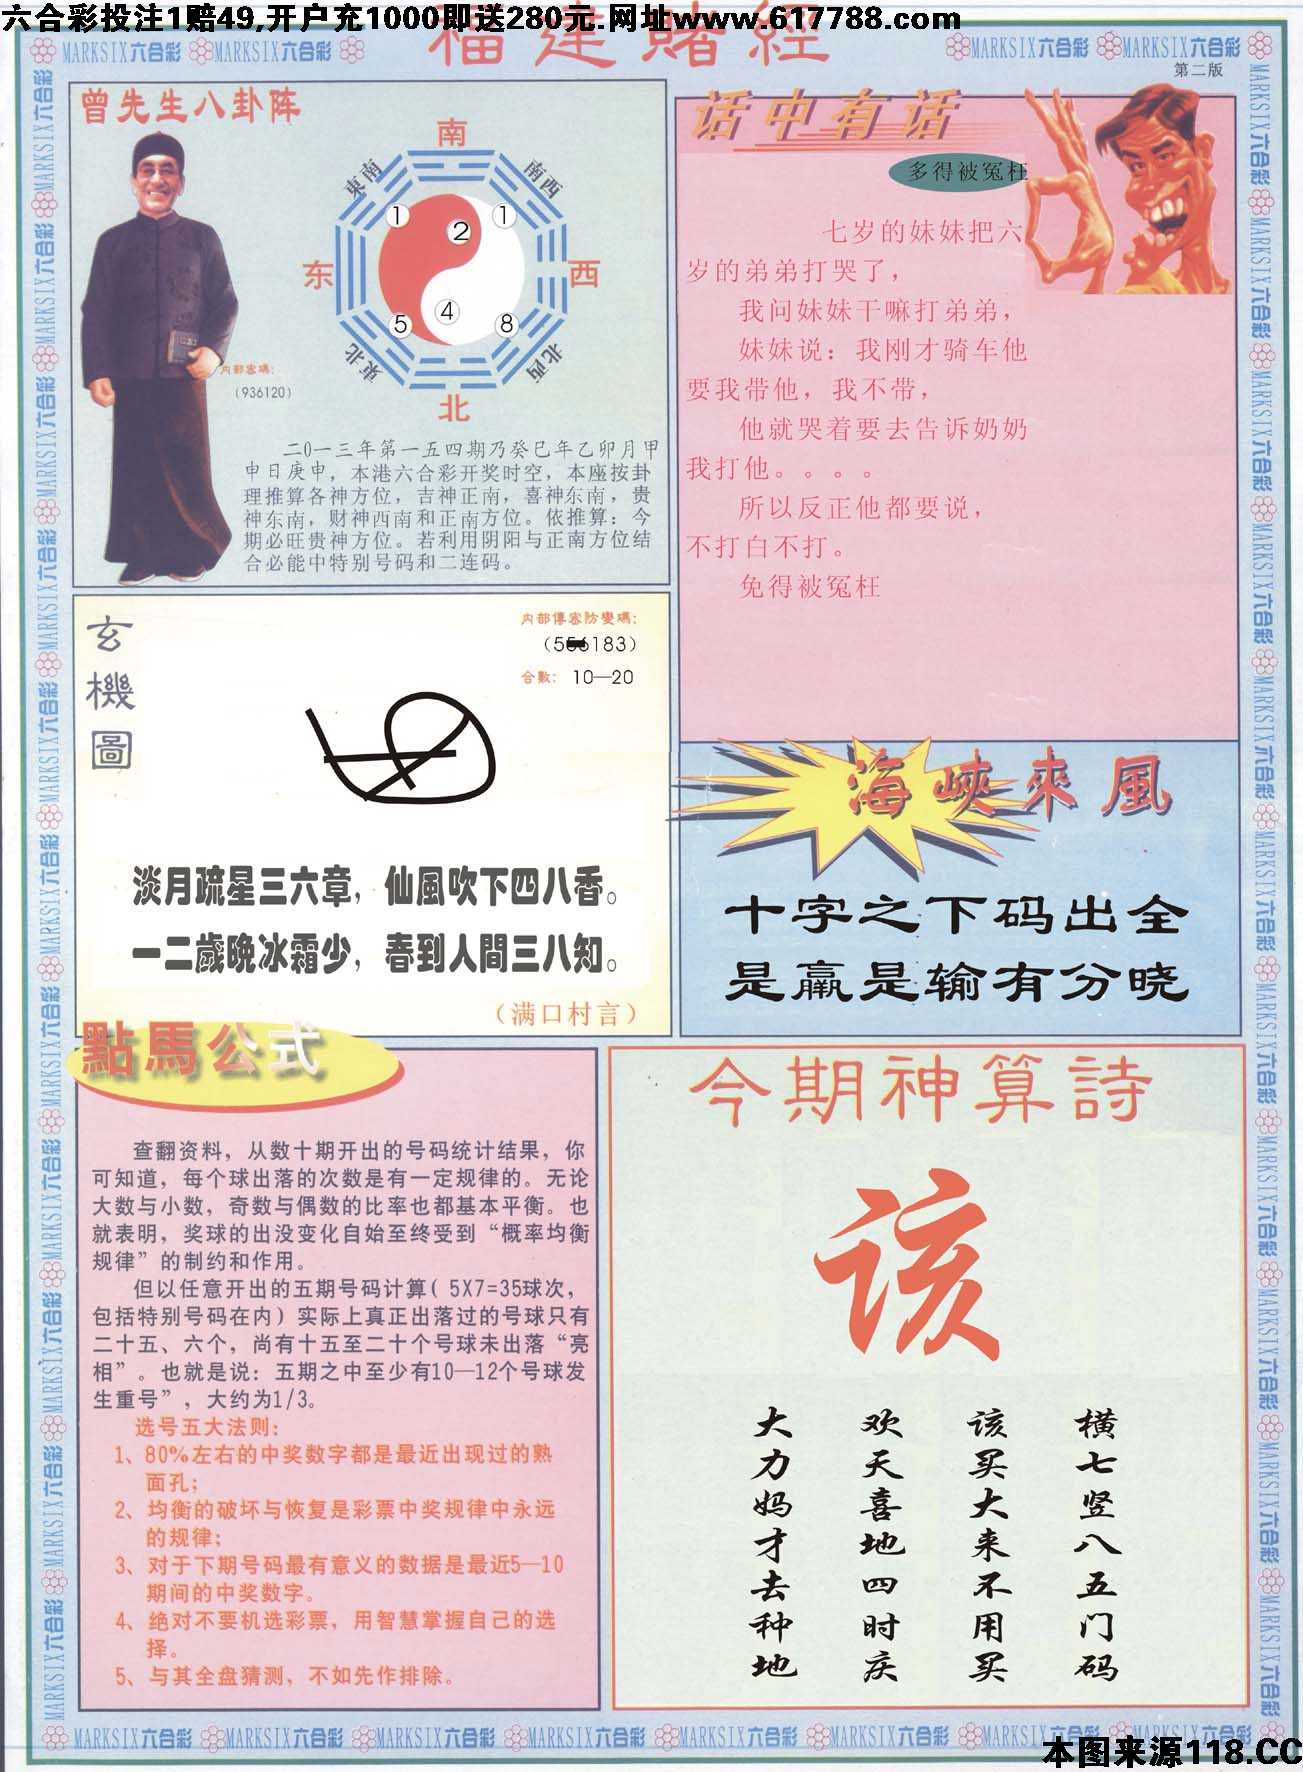 六合彩投注1赔49,开户充1000即送280元.网址www.617788.com
福建賭經
MARKSIX六合彩 MARKSIX六合彩
MARKSIX六合彩 MARKSIX六合彩
第二版
曾先生八卦阵
南
東南
南西
1
2
1
东
西
4
5
8
東北
北西
北
内部密碼：
（936120）
二0一三年第一五四期乃癸巳年乙卯月甲
申日庚申，本港六合彩开奖时空，本座按卦
理推算各神方位，吉神正南，喜神东南，贵
神东南，财神西南和正南方位。依推算：今
期必旺贵神方位。若利用阴阳与正南方位结
合必能中特别号码和二连码。
话中有话
多得被冤枉
七岁的妹妹把六
岁的弟弟打哭了，
我问妹妹干嘛打弟弟，
妹妹说：我刚才骑车他
要我带他，我不带，
他就哭着要去告诉奶奶
我打他。。。。
所以反正他都要说，
不打白不打。
免得被冤枉
玄機圖
内部傳密防變碼：
合數： 10—20
淡月疏星三六章，仙風吹下四八香。
一二歲晚冰霜少，春到人間三八知。
（满口村言）
海峽來風
十字之下码出全
是羸是输有分晓
點馬公式
查翻资料，从数十期开出的号码统计结果，你
可知道，每个球出落的次数是有一定规律的。无论
大数与小数，奇数与偶数的比率也都基本平衡。也
就表明，奖球的出没变化自始至终受到“概率均衡
规律”的制约和作用。
但以任意开出的五期号码计算( 5X7=35球次，
包括特别号码在内）实际上真正出落过的号球只有
二十五、六个，尚有十五至二十个号球未出落“亮
相”。也就是说：五期之中至少有10—12个号球发
生重号”，大约为1/3。
选号五大法则：
1、80%左右的中奖数字都是最近出现过的熟
面孔；
2、均衡的破坏与恢复是彩票中奖规律中永远
的规律；
3、对于下期号码最有意义的数据是最近5—10
期间的中奖数字。
4、绝对不要机选彩票，用智慧掌握自己的选
择。
5、与其全盘猜测，不如先作排除。
今期神算詩
该
横七竖八五门码
该买大来不用买
欢天喜地四时庆
大力妈才去种地
MARKSIX六合彩 MARKSIX六合彩 MARKSIX六合彩 MARKSIX六合彩 MARKSIX六合彩 MARKSIX六合彩 MARKSIX六合彩 MARKSIX六合彩
本图来源118.CC